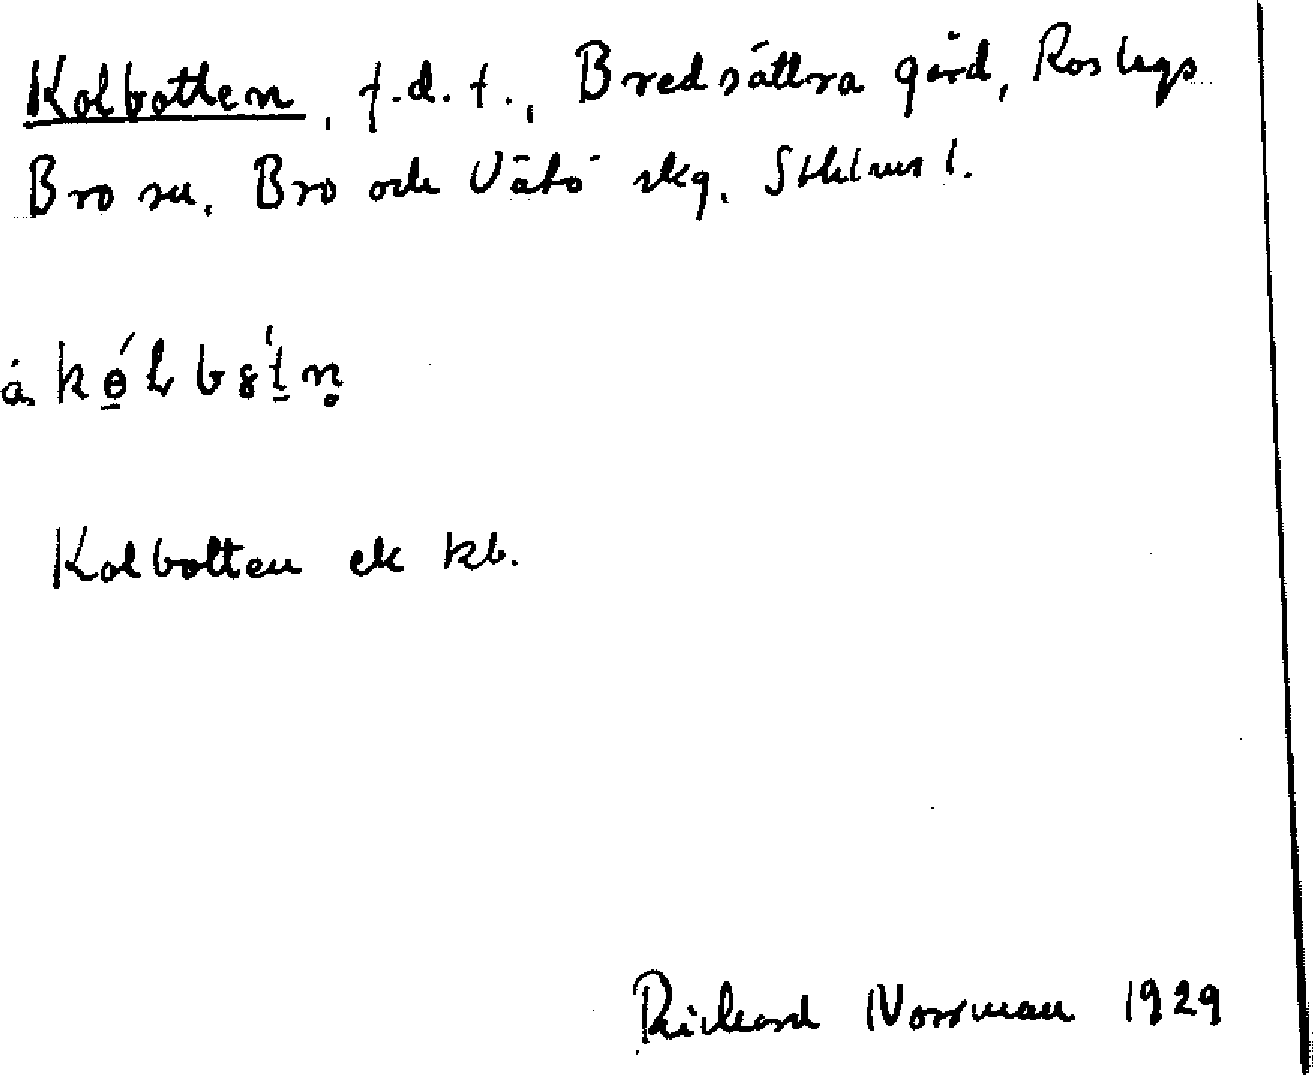 Kolbotten, f.d.t., Bredsättra gård, Roslags
Bro sn. Bro och Vätö skg. Sthlms l.
Kolbotten ek kb.
Richard Norrman 1929